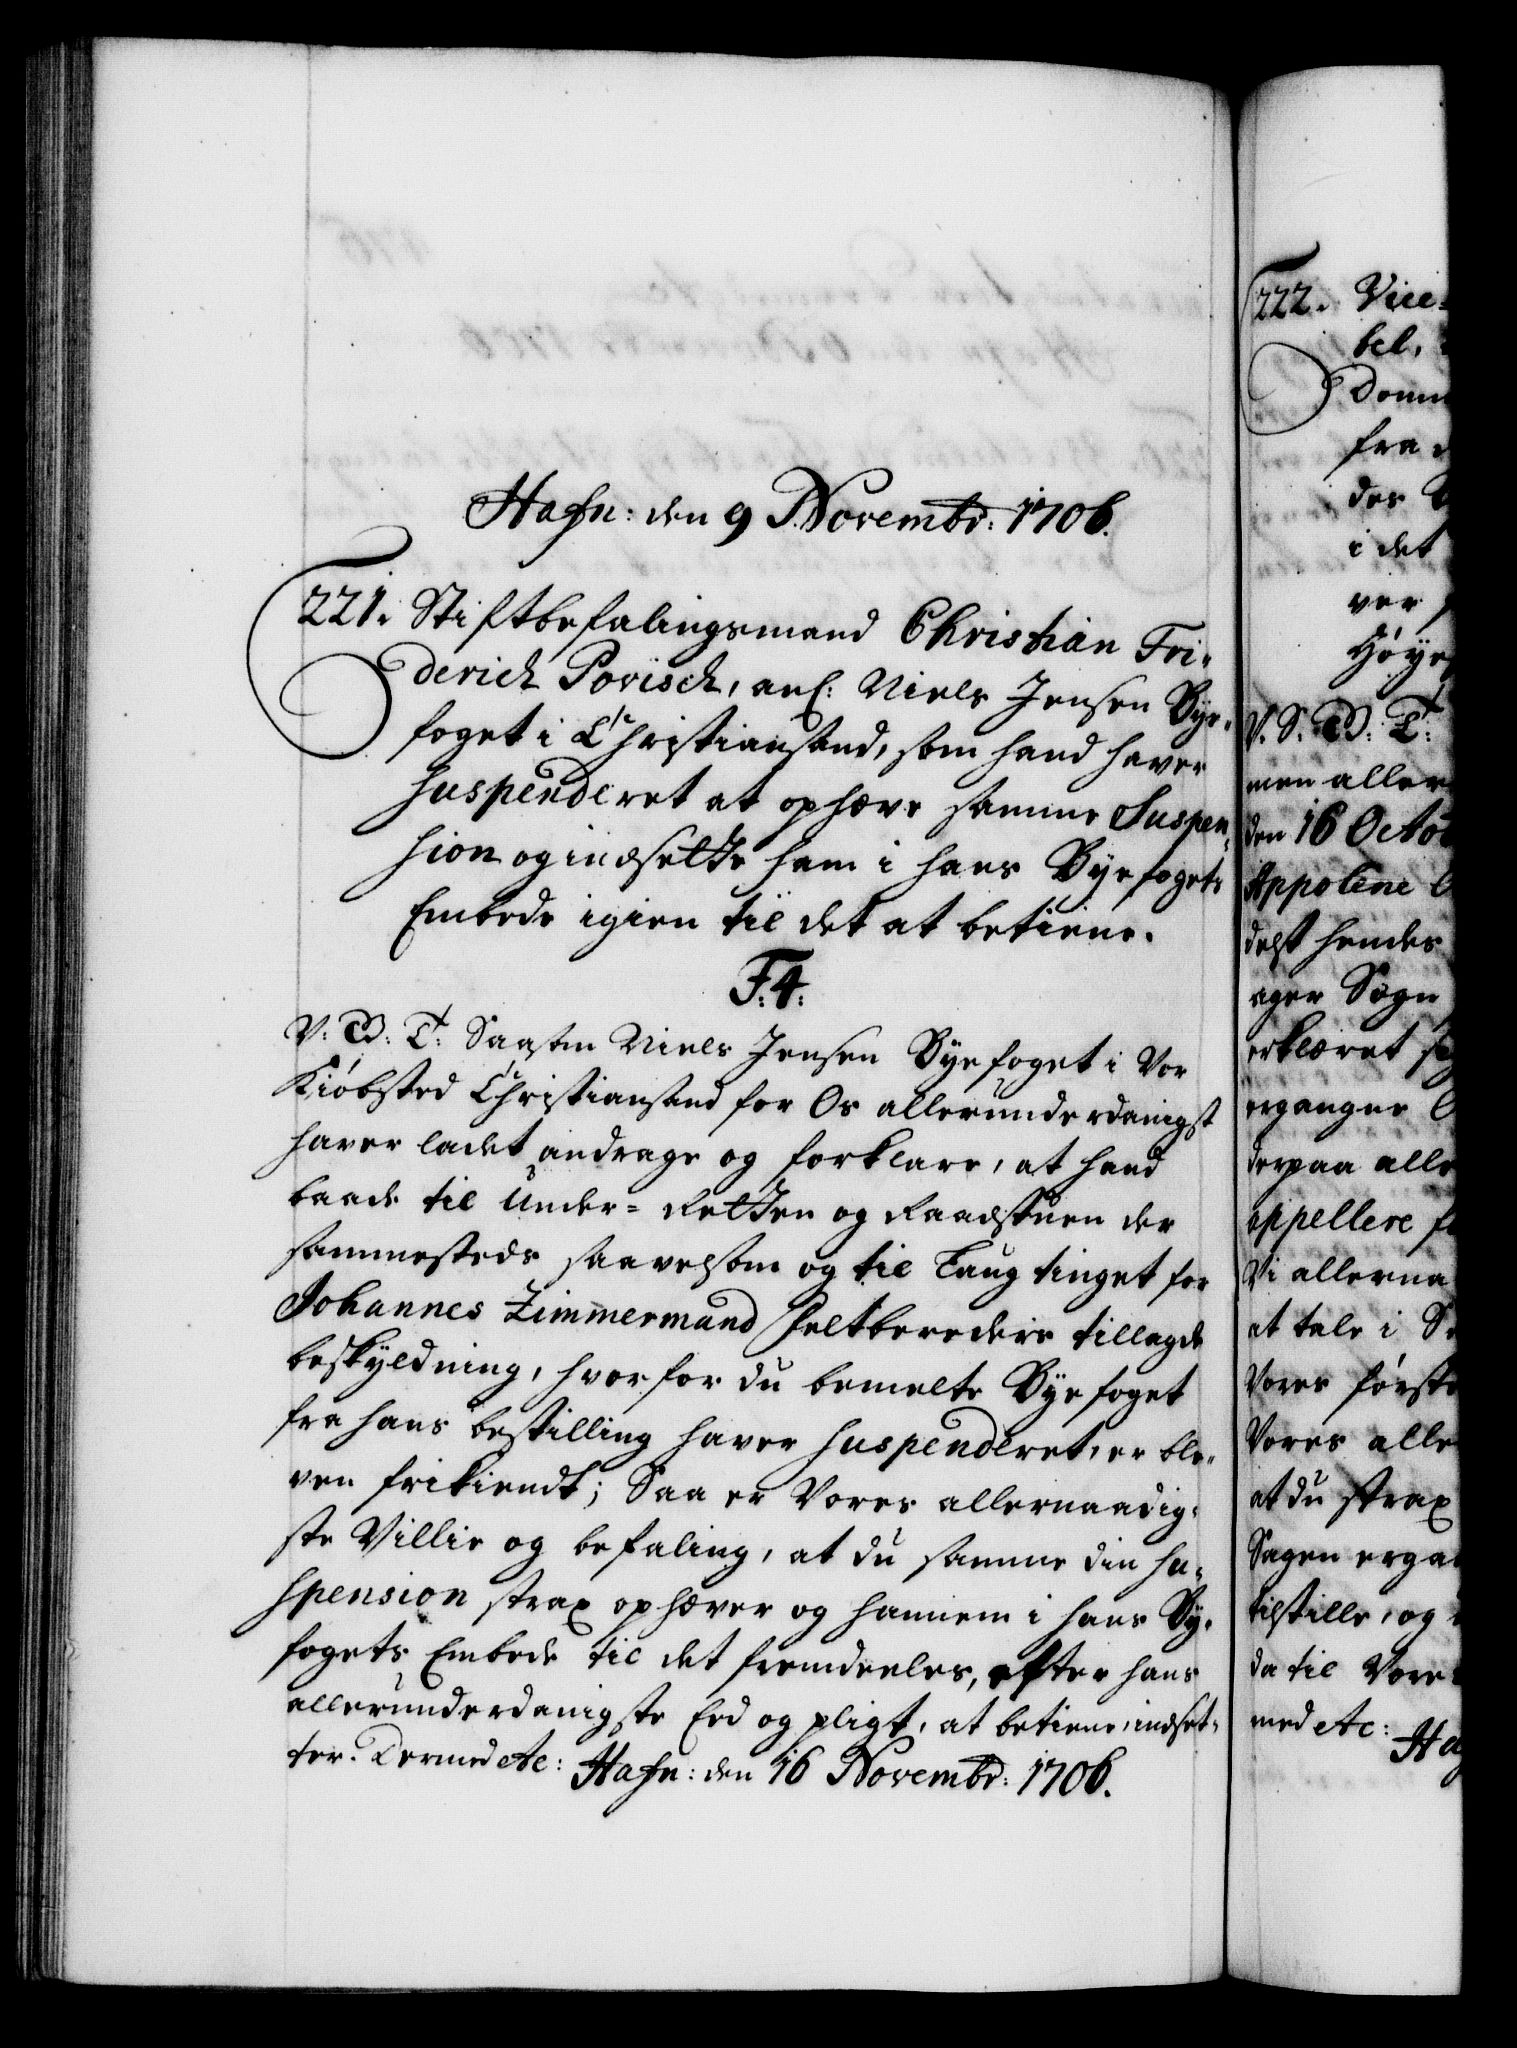 Hafn: den 9 Novembr: 1706.
221. Stiftbefalingsmand Christian Fri-
derich Povisch, anl: Niels Jensen Bye-
foget i Christiansand, som hand haver
suspenderet at ophæve samme Suspen-
sion og indsette ham i hans Byefogets
Embede igien til det at betiene.
F: 4:
V: G: T: Saasom Niels Jensen Byefoget i Vor
Kiøbsted Christiansand for Os allerunderdanigst
haver ladet andrage og forklare, at hand
baade til Under-Retten og Raadstuen der
sammesteds saavelsom og til Laugtinget for
Johannes Zimmermand Feltbereders tillagde
beskyldning, hvorfor du bemelte Byefoget
fra hans bestilling haver suspenderet, er ble-
ven frikiendt; Saa er Vores allernaadig-
ste Villie og befaling, at du samme din su-
spension strax ophæver og hannem i hans By-
fogets Embede til det fremdeeles, efter hans
allerunderdanigste Eed og pligt, at betiene, indset-
ter. Dermed etc: Hafn: den 16 Novembr: 1706.
222. Vice-
bel,
Domm
fra
des
i det
ver
Høye
V. S. G: T:
men aller
den 16 Octob
Appolene
delst hendes
ager Sogn
erklæret sig
ergangne
derpaa alle
appellere
Vi allerna
at tale i
Vores første
Vores alle
at du strax
Sagen ergan
tilstille, og
da til Vores
med etc:
Ha